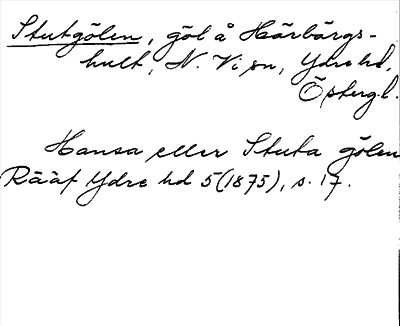 Stutgölen, göl å Härbärgs-
hult, N. Vi sn, Ydre hd,
Östergl.
Hansa eller Stuta gölen
Rääf Ydre hd 5(1875), s. 17.